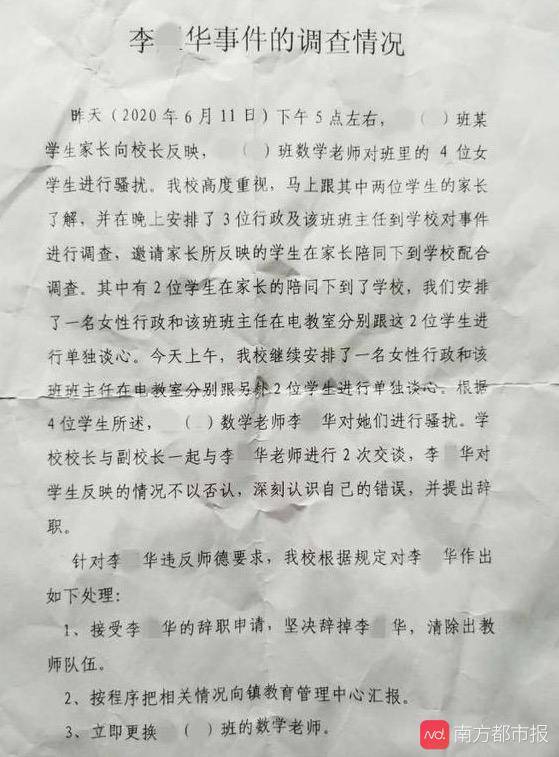 李 华事件的调查情况
昨天（2020年6月11日）下午5点左右， （ ）班某
学生家长向校长反映， （ ）班数学老师对班里的 4 位女
学生进行骚扰。我校高度重视，马上跟其中两位学生的家长
了解，并在晚上安排了3位行政及该班班主任到学校对事件
进行调查，邀请家长所反映的学生在家长陪同下到学校配合
调查。其中有2位学生在家长的陪同下到了学校，我们安排
了一名女性行政和该班班主任在电教室分别跟这2位学生进
行单独谈心。今天上午，我校继续安排了一名女性行政和该
班班主任在电教室分别跟另外2位学生进行单独谈心。根据
4位学生所述， （ ）数学老师李 华对她们进行骚扰。学
校校长与副校长一起与李 华老师进行2次交谈，李 华对
学生反映的情况不以否认，深刻认识自己的错误，并提出辞
职。
针对李 华违反师德要求，我校根据规定对李 华作出
如下处理：
1、接受李 华的辞职申请，坚决辞掉李 华，清除出教
师队伍。
2、按程序把相关情况向镇教育管理中心汇报。
3、立即更换 （ ）班的数学老师。
Nd. 南方都市报